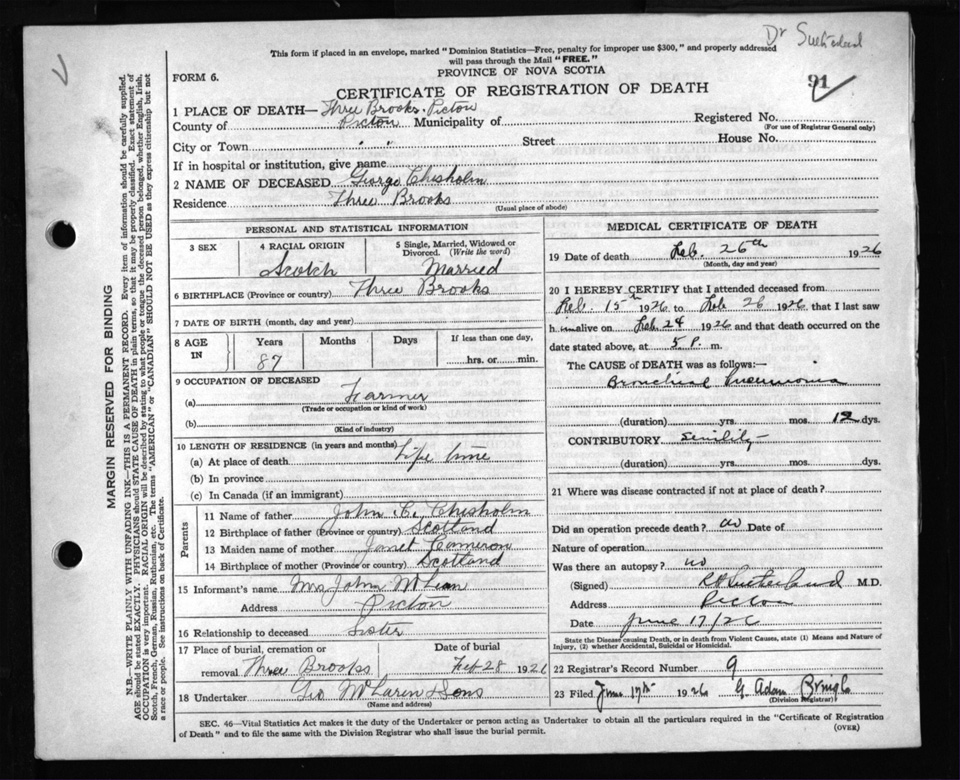 Dr Sutherland
This form if placed in an envelope, marked "Dominion Statistics—Free, penalty for improper use $300," and properly addressed
will pass through the Mail "FREE."
PROVINCE OF NOVA SCOTIA
FORM 6.
91
CERTIFICATE OF REGISTRATION OF DEATH
1 PLACE OF DEATH— Three Brooks. Picton
County of Picton Municipality of Registered No.
(For use of Registrar General only)
City or Town " " Street House No.
If in hospital or institution, give name
2 NAME OF DECEASED George Chisholm
Residence Three Brooks
(Usual place of abode)
PERSONAL AND STATISTICAL INFORMATION
3 SEX 4 RACIAL ORIGIN 5 Single, Married, Widowed or Divorced. (Write the word)
Scotch Married
6 BIRTHPLACE (Province or country) Three Brooks
7 DATE OF BIRTH (month, day and year)
8 AGE IN Years Months Days If less than one day,
87 hrs. or min.
9 OCCUPATION OF DECEASED
(a) Farmer
(Trade or occupation or kind of work)
(b)
(Kind of industry)
10 LENGTH OF RESIDENCE (in years and months)
(a) At place of death Life time
(b) In province
(c) In Canada (if an immigrant)
Parents
11 Name of father John C. Chisholm
12 Birthplace of father (Province or country) Scotland
13 Maiden name of mother Janet Cameron
14 Birthplace of mother (Province or country) Scotland
15 Informant's name Mrs John McLean
Address Picton
16 Relationship to deceased Sister
17 Place of burial, cremation or Date of burial
removal Three Brooks Feb 28 1926
18 Undertaker Geo McLaren & Sons
(Name and address)
MEDICAL CERTIFICATE OF DEATH
19 Date of death Feb. 26th 1926
(Month, day and year)
20 I HEREBY CERTIFY that I attended deceased from
Feb. 15th 1926 to Feb 26 1926 that I last saw
him alive on Feb 24 1926 and that death occurred on the
date stated above, at 5 P. m.
The CAUSE OF DEATH was as follows:—
Bronchial Pneumonia
(duration) yrs. mos. 12 dys.
CONTRIBUTORY Senility
(duration) yrs. mos. dys.
21 Where was disease contracted if not at place of death?
Did an operation precede death? no Date of
Nature of operation
Was there an autopsy? no
(Signed) Sutherland M.D.
Address Picton
Date June 17/26
State the Disease causing Death, or in death from Violent Causes, state (1) Means and Nature of
Injury, (2) whether Accidental, Suicidal or Homicidal.
22 Registrar's Record Number 9
23 Filed June 17th 1926 G. Adam
(Division Registrar)
SEC. 46—Vital Statistics Act makes it the duty of the Undertaker or person acting as Undertaker to obtain all the particulars required in the "Certificate of Registration
of Death" and to file the same with the Division Registrar who shall issue the burial permit.
(OVER)
MARGIN RESERVED FOR BINDING
N.B.—WRITE PLAINLY WITH UNFADING INK—THIS IS A PERMANENT RECORD. Every item of information should be carefully supplied.
AGE should be stated EXACTLY. PHYSICIANS should STATE CAUSE OF DEATH in plain terms, so that it may be properly classified. Exact statement of
OCCUPATION is very important. RACIAL ORIGIN will be described by stating to what people or tongue the deceased person belonged, whether English, Irish,
Scotch, French, German, Russian, Ruthenian, etc. The terms "AMERICAN" or "CANADIAN" SHOULD NOT BE USED as they express citizenship but not
a race or people. See instructions on back of Certificate.